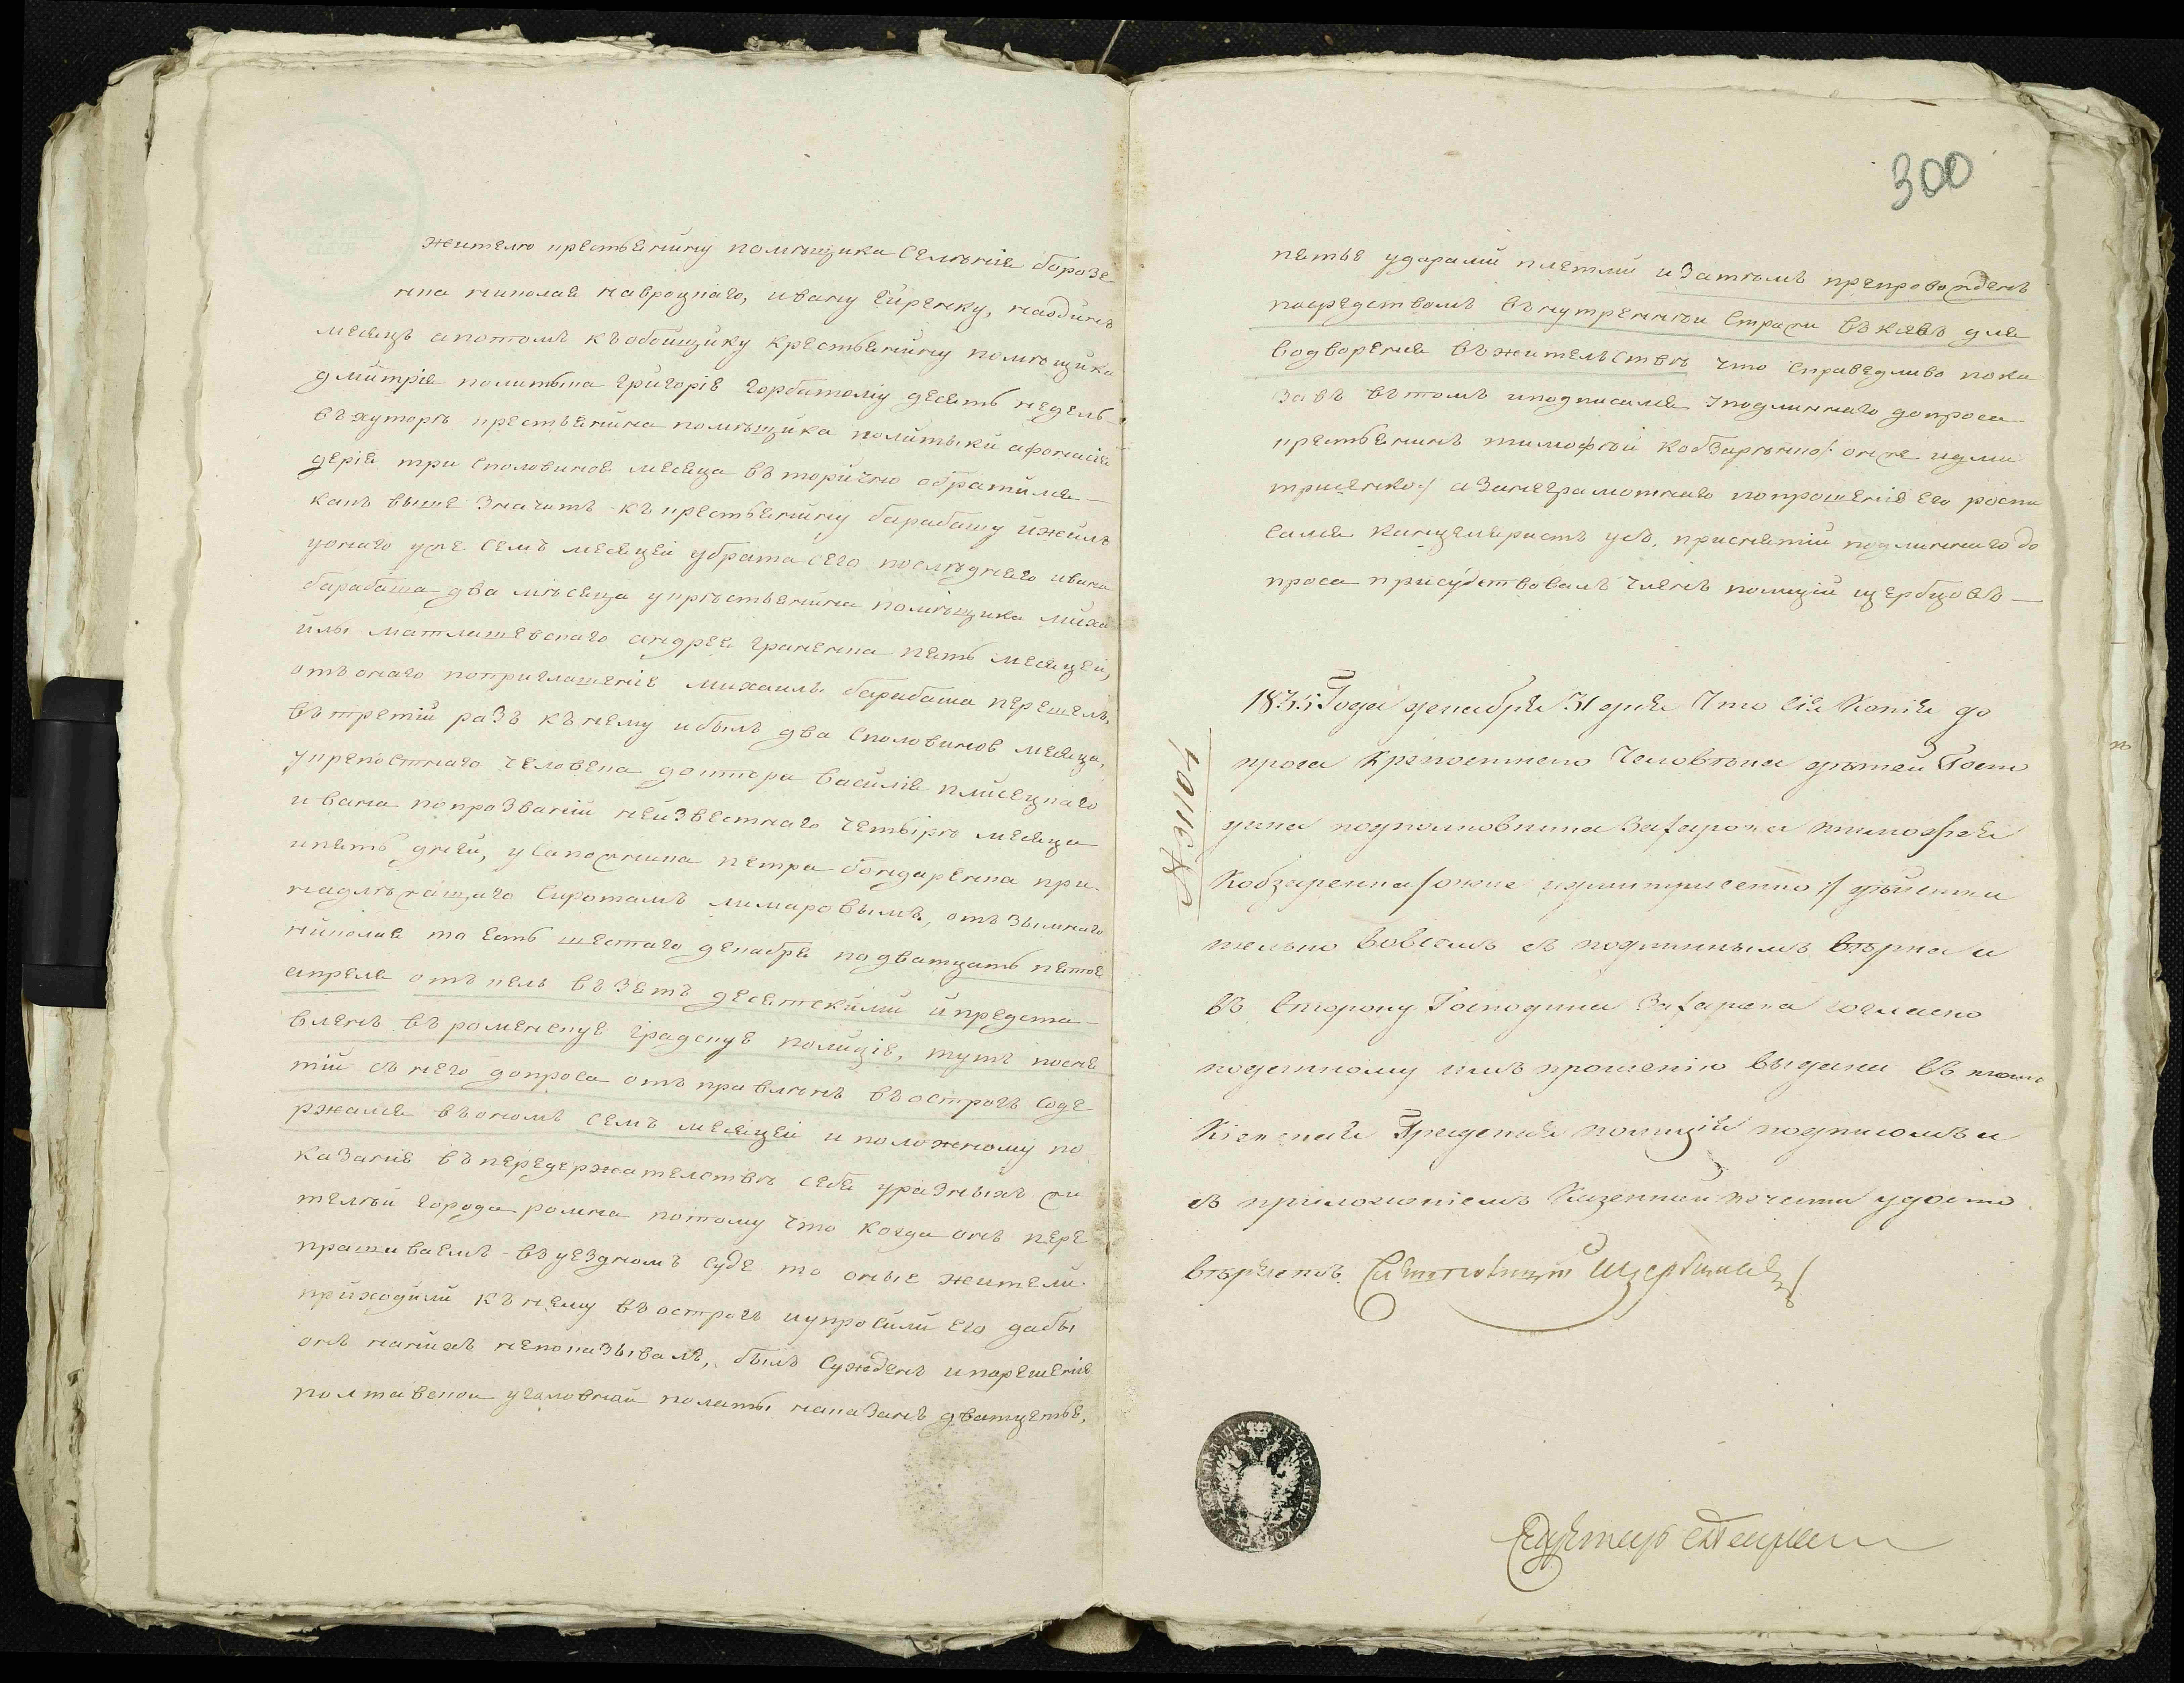 жителю крестьянину помѣщика Семѣнія борозе
нка николая навроцкаго, ивану Гиренку, наодинъ
месяцъ апотомъ къ обойщику крестьянину помѣщика
дмитрія политыка григорію горбатому десять недель
въ хуторѣ крестьянина помѣщика политыки афонасія
дерія три споловиной месяца въ торично обратился
какъ выше значитъ къ крестьянину барабашу ижилъ
уонаго уже семъ месяцей убрата сего послѣдняго ивана
барабаша два мѣсяца укрѣстьянина помѣщика миха
илы матлашевскаго андрея граненка пять месяцей,
отъ онаго поприглашенію михаилы барабаша перешелъ,
въ третій разъ къ нему ибылъ два споловиной месяца,
укрепостнаго человека доктора василія плисецкаго
ивана попрозванію неизвестнаго четырѣ месяца
ипять дней, усапожника петра бондаренка при-
надлѣжащаго сиротамъ лимаровымъ, отъ зымнаго
николая то есть шестаго декабря подватцать пятое
апреля отъ коль взятъ десятскими ипредста-
вленъ въ роменскую градскую полицію, тутъ посня
тіи съ него допроса отъ правленъ въ острогъ соде
ржался въ ономъ семъ месяцей и положному по
казанію въ передержателствѣ себя уразныхъ жи
телѣй города ромна потому что когда онъ пере
прашиваемъ въ уездномъ суде то оные жители
приходили къ нему въ острогъ иупросили его дабы
онъ нанихъ непоказывалъ, былъ сужденъ ипорешенію
полтавской уголовной полаты наказанъ дватцетье,
300
петью ударами плетми изатѣмъ препровожденъ
посредствомъ вънутреннѣи стражи въ кивъ для
водворения въ жительствѣ что справедливо пока
завъ въ томъ иподписался уподлиннаго допроса
крестьянинъ тимофѣй кобзарѣнко/: онже идми
трисенко:/ азанеграмотнаго попрошенію его роспи
сался канцеляристъ убѣ. приснятіи подлиннаго до
проса присудствовалъ членъ полиціи щербцовъ
№ 31104
1835 Года декабря 31 дня Что сія Копія до
проса Крѣпостнаго Человѣка дѣтей Госпо
дина подполковника Захарова тимофея
Кобзаренка/: онже идмитрисенко :/ дѣйстви
тельно вовсемъ съ подлиннымъ вѣрна и
въ сторону Господина Захарова согласно
поданному имъ прошенію выдана въ томъ
Кіевская Градская полиція подписомъ и
съ приложеніемъ Казенной печати удосто
вѣряетъ.